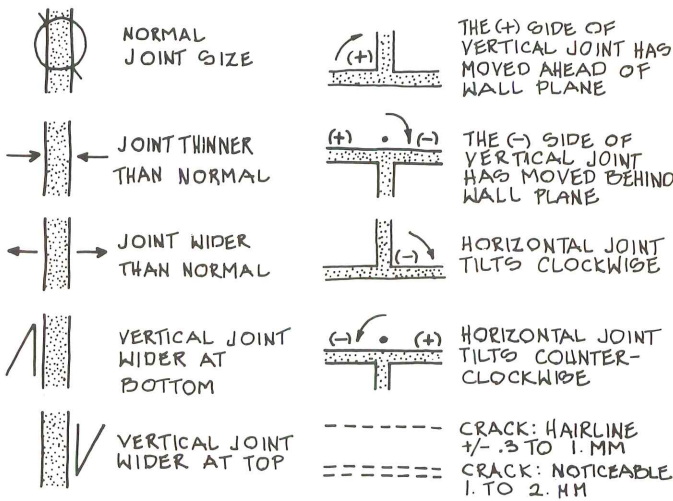 NORMAL
JOINT SIZE
JOINT THINNER
THAN NORMAL
JOINT WIDER
THAN NORMAL
VERTICAL JOINT
WIDER AT
BOTTOM
VERTICAL JOINT
WIDER AT TOP
(+)
THE (+) SIDE OF
VERTICAL JOINT HAS
MOVED AHEAD OF
WALL PLANE
(+) (-)
THE (-) SIDE OF
VERTICAL JOINT
HAS MOVED BEHIND
WALL PLANE
(-)
HORIZONTAL JOINT
TILTS CLOCKWISE
(-) (+)
HORIZONTAL JOINT
TILTS COUNTER-
CLOCKWISE
CRACK: HAIRLINE
+/- .3 TO 1. MM
CRACK: NOTICEABLE
1. TO 2. MM